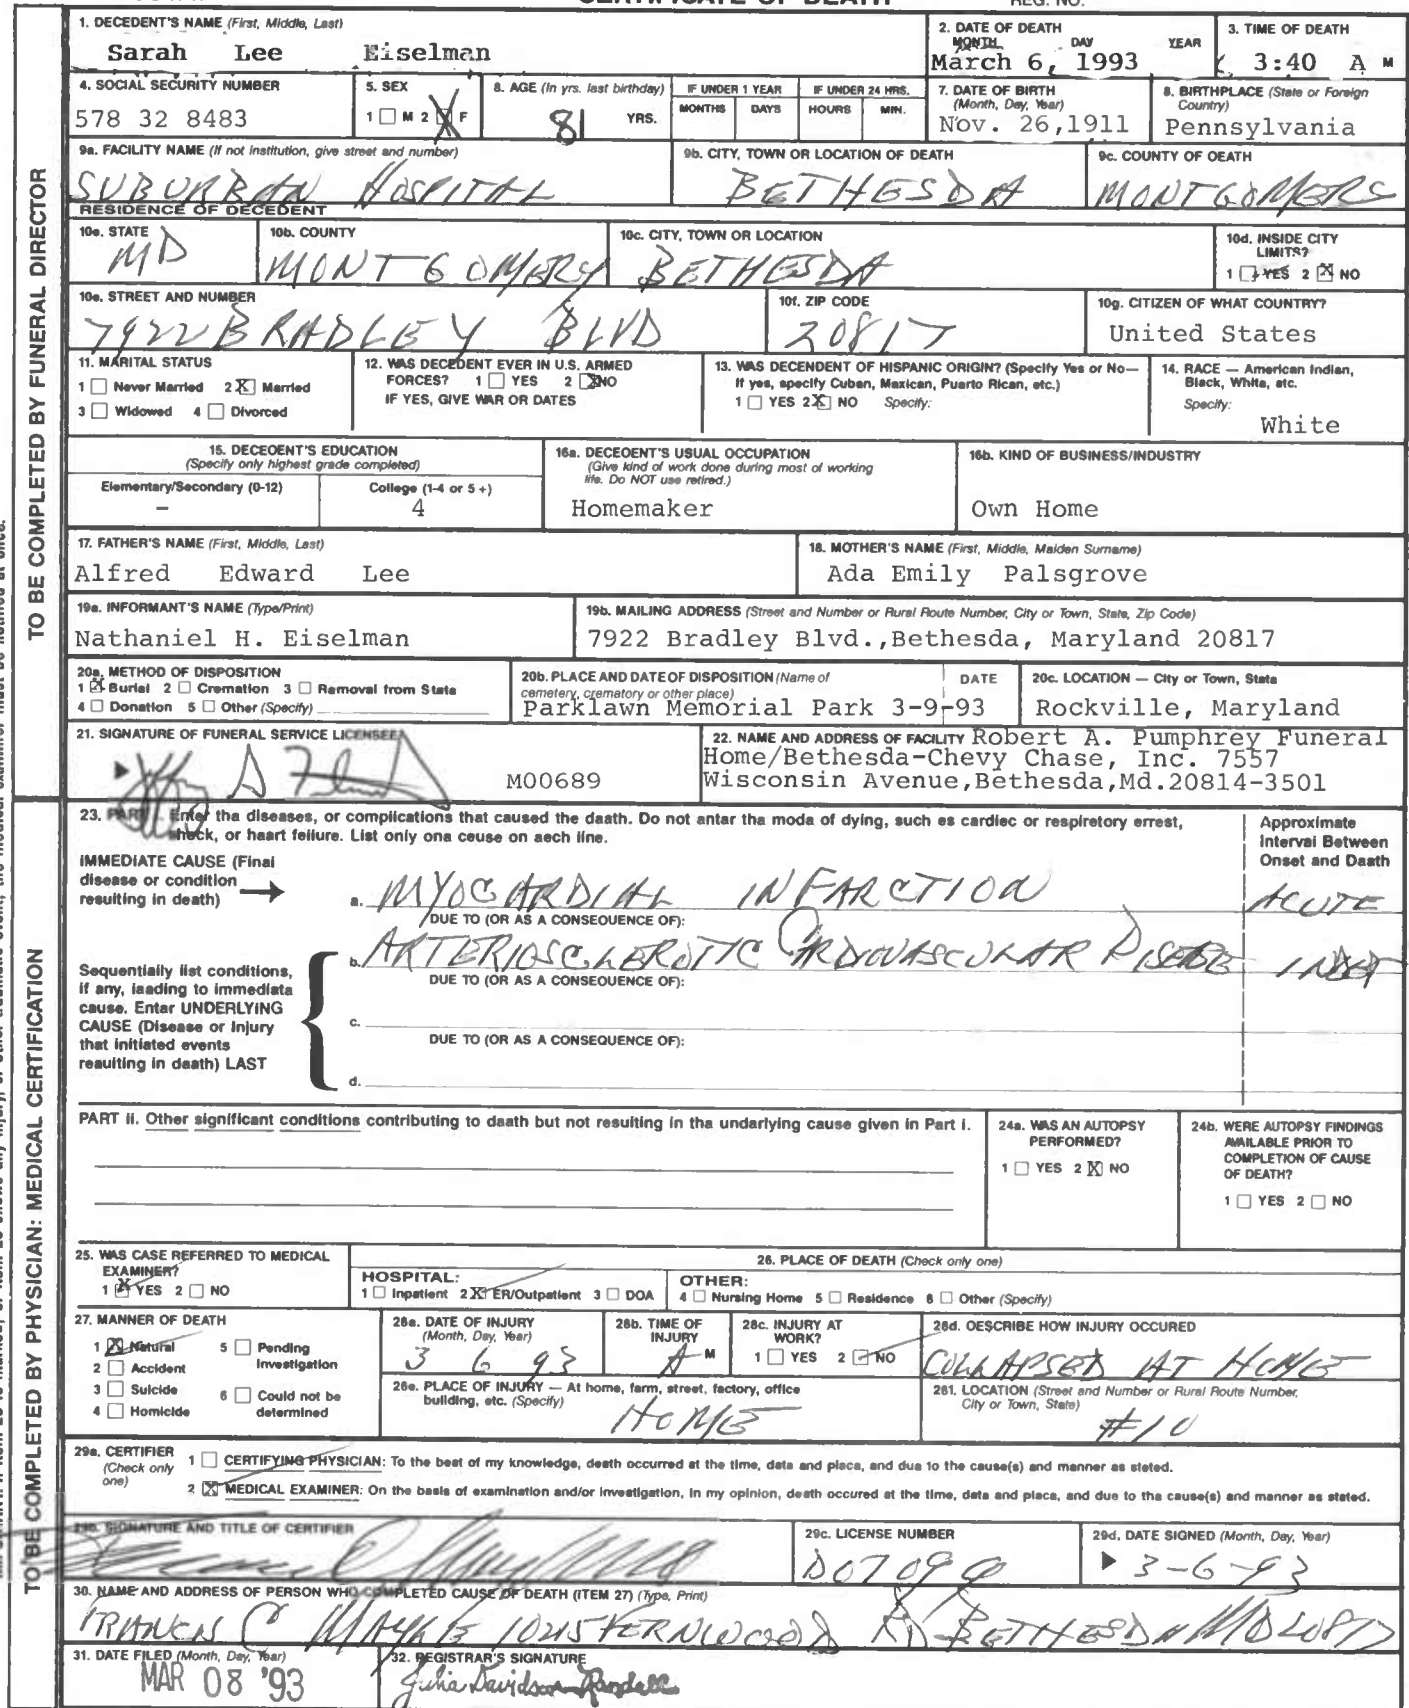 CERTIFICATE OF DEATH REG. NO.
TO BE COMPLETED BY FUNERAL DIRECTOR
1. DECEDENT'S NAME (First, Middle, Last)
Sarah Lee Eiselman
2. DATE OF DEATH
MONTH DAY YEAR
March 6, 1993
3. TIME OF DEATH
3:40 A M
4. SOCIAL SECURITY NUMBER
578 32 8483
5. SEX
1 ☐ M 2 ☒ F
8. AGE (In yrs. last birthday)
81 YRS.
IF UNDER 1 YEAR
MONTHS DAYS
IF UNDER 24 HRS.
HOURS MIN.
7. DATE OF BIRTH
(Month, Day, Year)
Nov. 26,1911
8. BIRTHPLACE (State or Foreign
Country)
Pennsylvania
9a. FACILITY NAME (If not institution, give street and number)
SUBURBAN HOSPITAL
9b. CITY, TOWN OR LOCATION OF DEATH
BETHESDA
9c. COUNTY OF DEATH
MONTGOMERY
RESIDENCE OF DECEDENT
10a. STATE
MD
10b. COUNTY
MONTGOMERY
10c. CITY, TOWN OR LOCATION
BETHESDA
10d. INSIDE CITY
LIMITS?
1 ☐ YES 2 ☒ NO
10e. STREET AND NUMBER
7922 BRADLEY BLVD
10f. ZIP CODE
20817
10g. CITIZEN OF WHAT COUNTRY?
United States
11. MARITAL STATUS
1 ☐ Never Married 2 ☒ Married
3 ☐ Widowed 4 ☐ Divorced
12. WAS DECEDENT EVER IN U.S. ARMED
FORCES? 1 ☐ YES 2 ☒ NO
IF YES, GIVE WAR OR DATES
13. WAS DECENDENT OF HISPANIC ORIGIN? (Specify Yes or No—
If yes, specify Cuban, Mexican, Puerto Rican, etc.)
1 ☐ YES 2 ☒ NO Specify:
14. RACE — American Indian,
Black, White, etc.
Specify:
White
15. DECEDENT'S EDUCATION
(Specify only highest grade completed)
Elementary/Secondary (0-12)
-
College (1-4 or 5+)
4
16a. DECEDENT'S USUAL OCCUPATION
(Give kind of work done during most of working
life. Do NOT use retired.)
Homemaker
16b. KIND OF BUSINESS/INDUSTRY
Own Home
17. FATHER'S NAME (First, Middle, Last)
Alfred Edward Lee
18. MOTHER'S NAME (First, Middle, Maiden Surname)
Ada Emily Palsgrove
19a. INFORMANT'S NAME (Type/Print)
Nathaniel H. Eiselman
19b. MAILING ADDRESS (Street and Number or Rural Route Number, City or Town, State, Zip Code)
7922 Bradley Blvd.,Bethesda, Maryland 20817
20a. METHOD OF DISPOSITION
1 ☒ Burial 2 ☐ Cremation 3 ☐ Removal from State
4 ☐ Donation 5 ☐ Other (Specify)
20b. PLACE AND DATE OF DISPOSITION (Name of
cemetery, crematory or other place)
DATE
Parklawn Memorial Park 3-9-93
20c. LOCATION — City or Town, State
Rockville, Maryland
21. SIGNATURE OF FUNERAL SERVICE LICENSEE
M00689
22. NAME AND ADDRESS OF FACILITY Robert A. Pumphrey Funeral
Home/Bethesda-Chevy Chase, Inc. 7557
Wisconsin Avenue,Bethesda,Md.20814-3501
TO BE COMPLETED BY PHYSICIAN: MEDICAL CERTIFICATION
23. PART I. Enter the diseases, or complications that caused the death. Do not enter the mode of dying, such as cardiac or respiratory arrest,
shock, or heart failure. List only one cause on each line.
Approximate
Interval Between
Onset and Death
IMMEDIATE CAUSE (Final
disease or condition
resulting in death)
a. MYOCARDIAL INFARCTION ACUTE
DUE TO (OR AS A CONSEQUENCE OF):
b. ARTERIOSCLEROTIC CARDIOVASCULAR DISEASE INDET
DUE TO (OR AS A CONSEQUENCE OF):
Sequentially list conditions,
if any, leading to immediate
cause. Enter UNDERLYING
CAUSE (Disease or Injury
that initiated events
resulting in death) LAST
c.
DUE TO (OR AS A CONSEQUENCE OF):
d.
PART II. Other significant conditions contributing to death but not resulting in the underlying cause given in Part I.
24a. WAS AN AUTOPSY
PERFORMED?
1 ☐ YES 2 ☒ NO
24b. WERE AUTOPSY FINDINGS
AVAILABLE PRIOR TO
COMPLETION OF CAUSE
OF DEATH?
1 ☐ YES 2 ☐ NO
25. WAS CASE REFERRED TO MEDICAL
EXAMINER?
1 ☒ YES 2 ☐ NO
26. PLACE OF DEATH (Check only one)
HOSPITAL:
1 ☐ Inpatient 2 ☒ ER/Outpatient 3 ☐ DOA
OTHER:
4 ☐ Nursing Home 5 ☐ Residence 6 ☐ Other (Specify)
27. MANNER OF DEATH
1 ☒ Natural 5 ☐ Pending
Investigation
2 ☐ Accident
3 ☐ Suicide 6 ☐ Could not be
determined
4 ☐ Homicide
28a. DATE OF INJURY
(Month, Day, Year)
3 6 93
28b. TIME OF
INJURY
A M
28c. INJURY AT
WORK?
1 ☐ YES 2 ☐ NO
28d. DESCRIBE HOW INJURY OCCURED
COLLAPSED AT HOME
28e. PLACE OF INJURY — At home, farm, street, factory, office
building, etc. (Specify)
HOME
28f. LOCATION (Street and Number or Rural Route Number,
City or Town, State)
#10
29a. CERTIFIER
(Check only
one)
1 ☐ CERTIFYING PHYSICIAN: To the best of my knowledge, death occurred at the time, date and place, and due to the cause(s) and manner as stated.
2 ☒ MEDICAL EXAMINER: On the basis of examination and/or investigation, in my opinion, death occured at the time, date and place, and due to the cause(s) and manner as stated.
29b. SIGNATURE AND TITLE OF CERTIFIER
29c. LICENSE NUMBER
D07099
29d. DATE SIGNED (Month, Day, Year)
3-6-93
30. NAME AND ADDRESS OF PERSON WHO COMPLETED CAUSE OF DEATH (ITEM 27) (Type, Print)
FRANCIS C MAYLE 10215 FERNWOOD RD BETHESDA MD 20817
31. DATE FILED (Month, Day, Year)
MAR 08 '93
32. REGISTRAR'S SIGNATURE
Julia Davidson-Randall